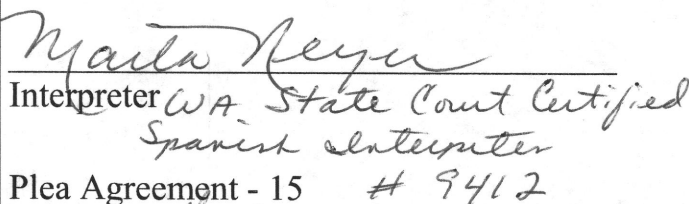 Marta Reyer
Interpreter WA State Court Certified
Spanish Interpreter
Plea Agreement - 15 # 9412